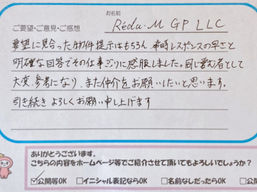 お名前
ご要望・ご意見・ご感想
Reda・M GP LLC
要望に見合った物件提示はもちろん、素晴レスポンスの早さと
明確な回答でその仕事ぶりに感服しました。同じ営業者として
大変参考になり、また仲介をお願いしたいと思います。
引き続きよろしくお願い申し上げます
ありがとうございます。
こちらの内容をホームページ等でご紹介させて頂いてもよろしいでしょうか?
公開等OK
イニシャル表記ならOK
名前なしだったらOK